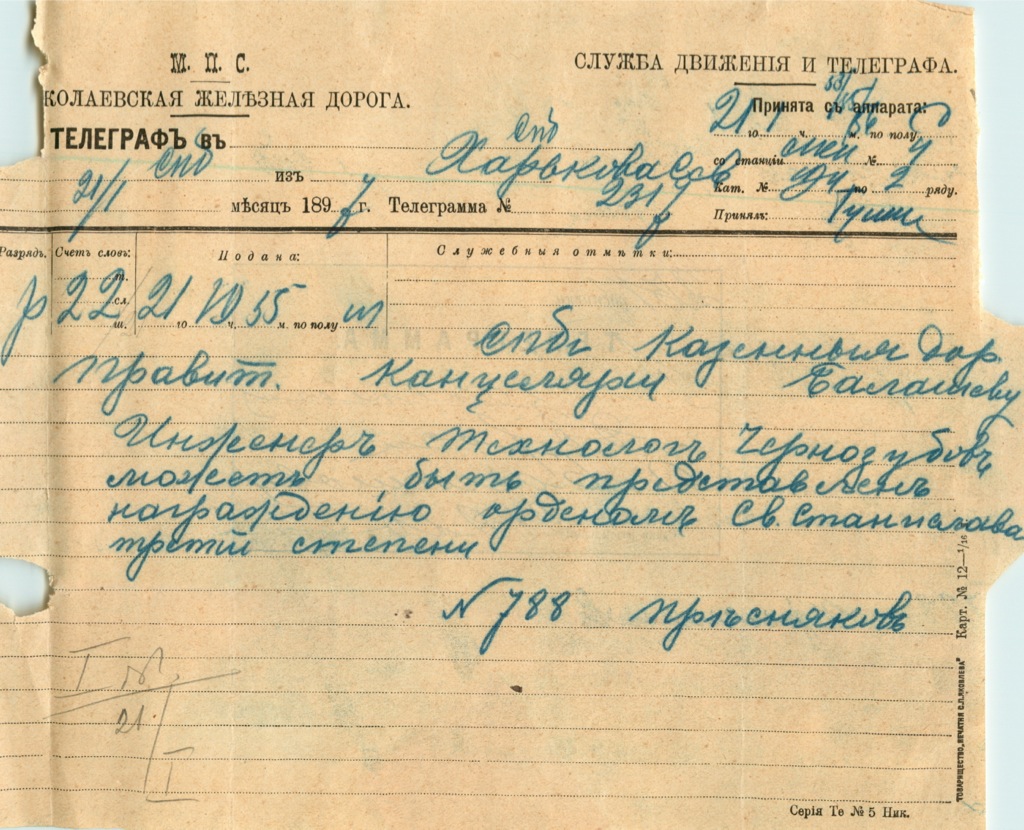 М. П. С.
СЛУЖБА ДВИЖЕНІЯ И ТЕЛЕГРАФА.
КОЛАЕВСКАЯ ЖЕЛѢЗНАЯ ДОРОГА.
Принята съ аппарата:
21 го ч. м. по полу
ТЕЛЕГРАФЪ въ Спб
со станціи № 4
Спб изъ Харькова
Кат. № по 2 ряду.
21/I мѣсяцъ 1897 г. Телеграмма № 2317
Принялъ:
Разрядъ. Счетъ словъ: Подана: Служебныя отмѣтки:
т.
р 22 сл. 21 го ч. 55 м. по полу
ш.
Спб Казенныя дор.
Правит. Канцелярии Балашеву
Инженеръ технологъ Чернозубовъ
можетъ быть представленъ
награжденію орденомъ Св. Станислава
третій степени
N 788 Прѣсняковъ
I
21
I
Карт. № 12—1/16
ТОВАРИЩЕСТВО „ПЕЧАТНЯ С.П.ЯКОВЛЕВА"
Серія Те № 5 Ник.